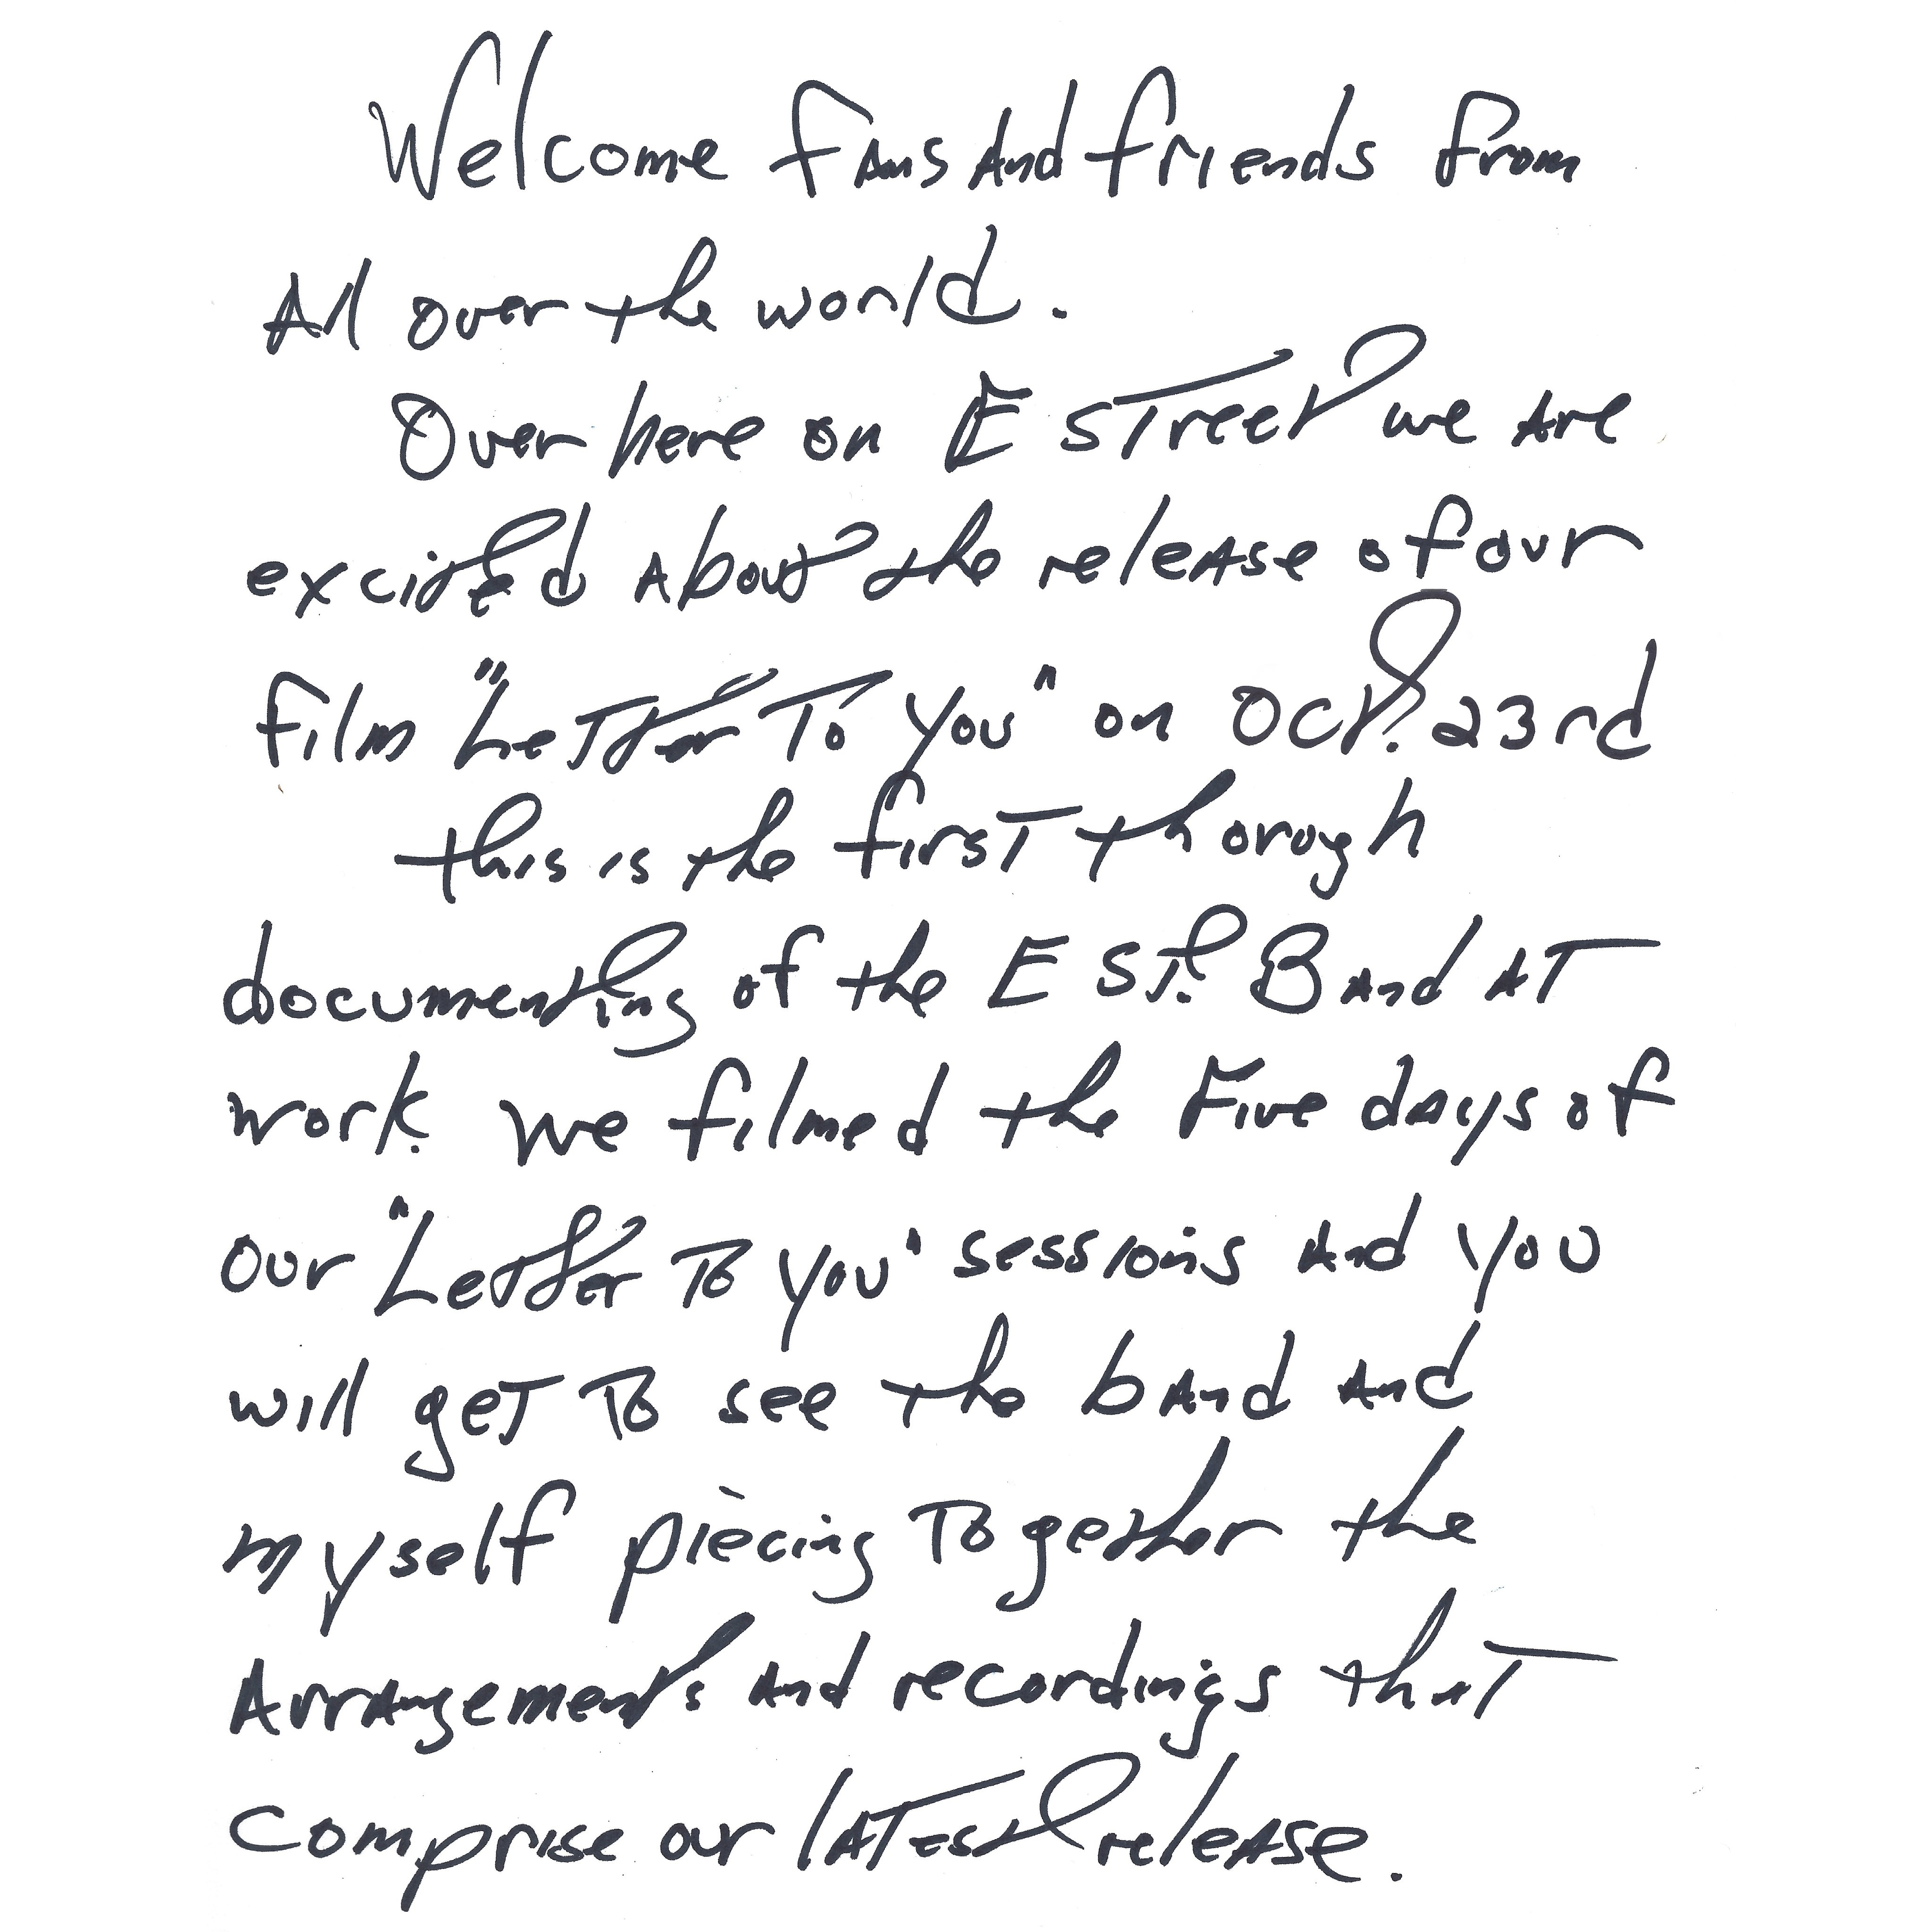 Welcome fans and friends from
all over the world.
Over here on E Street we are
excited about the release of our
film "Letter To You" on Oct. 23rd
this is the first thorough
documenting of the E St. Band at
work. We filmed the five days of
our "Letter To You" sessions and you
will get to see the band and
myself piecing together the
arrangements and recordings that
comprise our latest release.